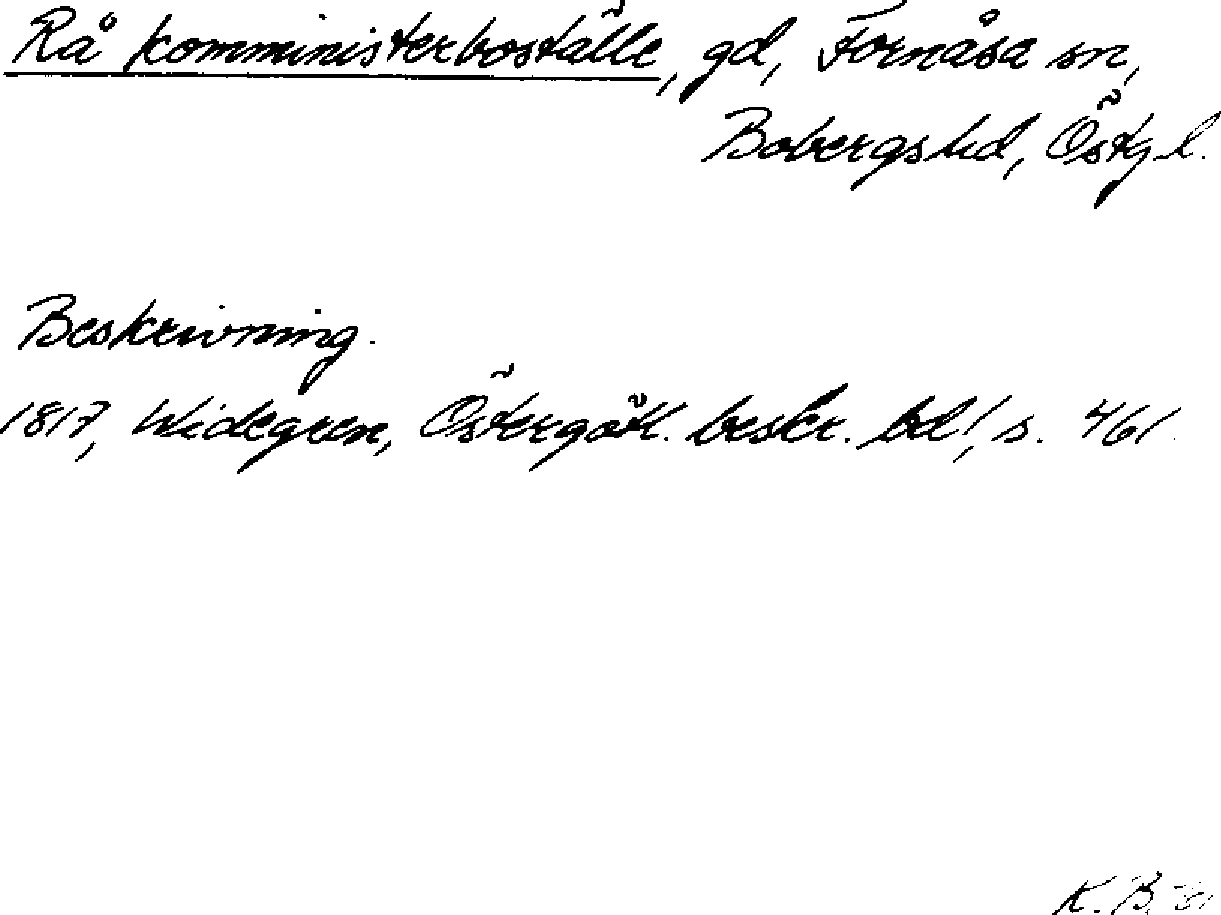 Rå komministerboställe, gd, Fornåsa sn,
Bobergs hd, Östg l.
Beskrivning.
1817, Widegren, Östergötl. beskr. bd 1, s. 461.
K. B.